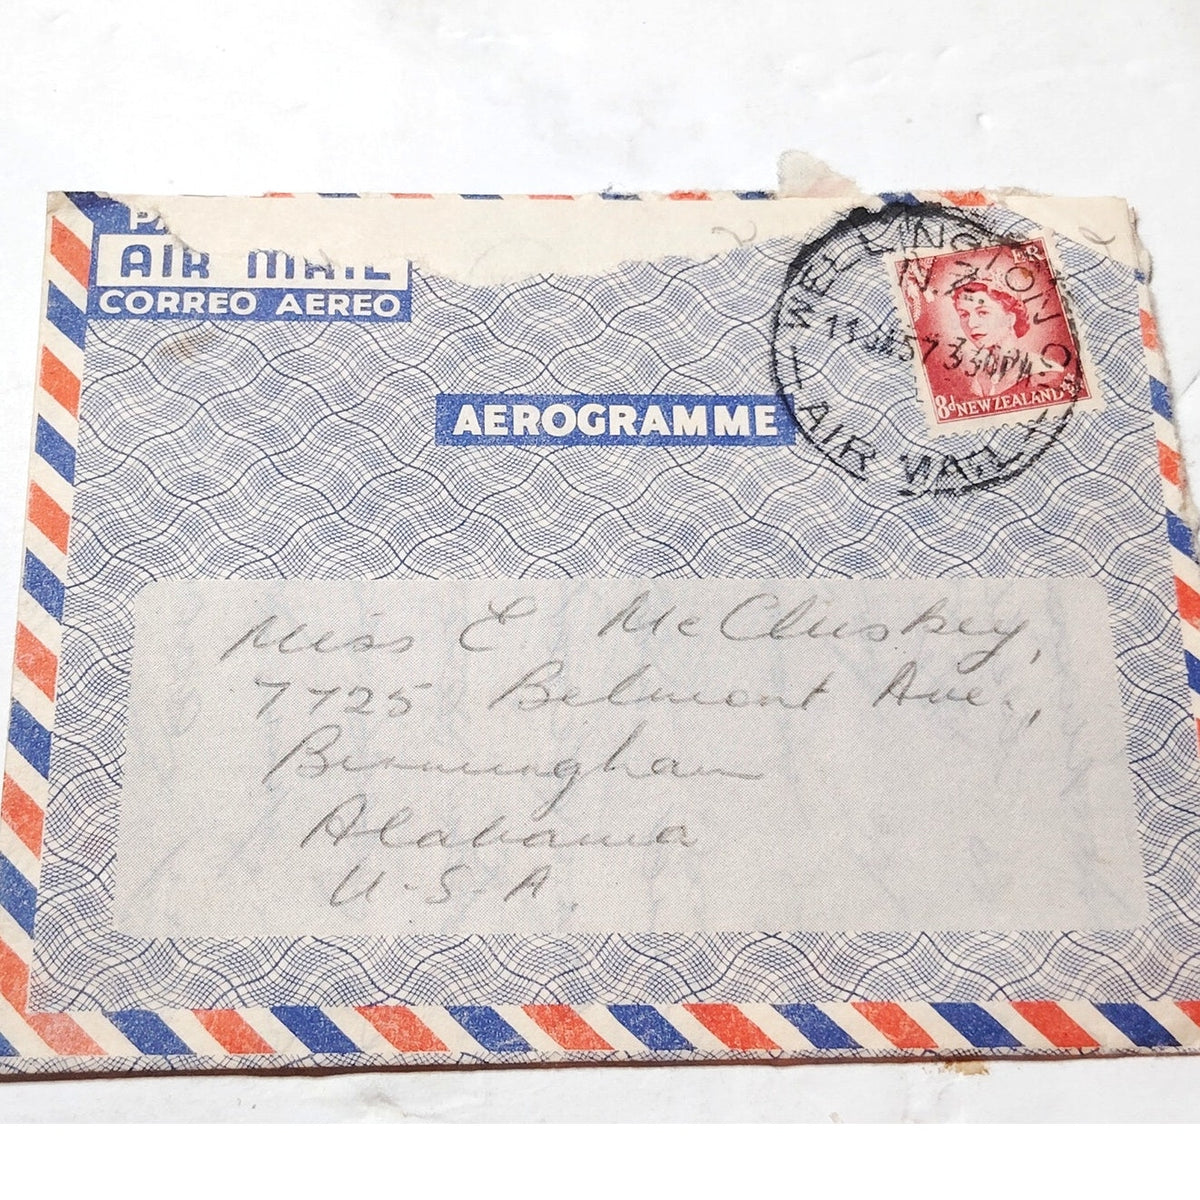 AIR MAIL
CORREO AEREO
AEROGRAMME
WELLINGTON
N.Z.
11 JA 57 3 30 PM
AIR MAIL
E R
8d NEW ZEALAND
Miss E. McCluskey,
7725 Belmont Ave.,
Birmingham
Alabama
U.S.A.